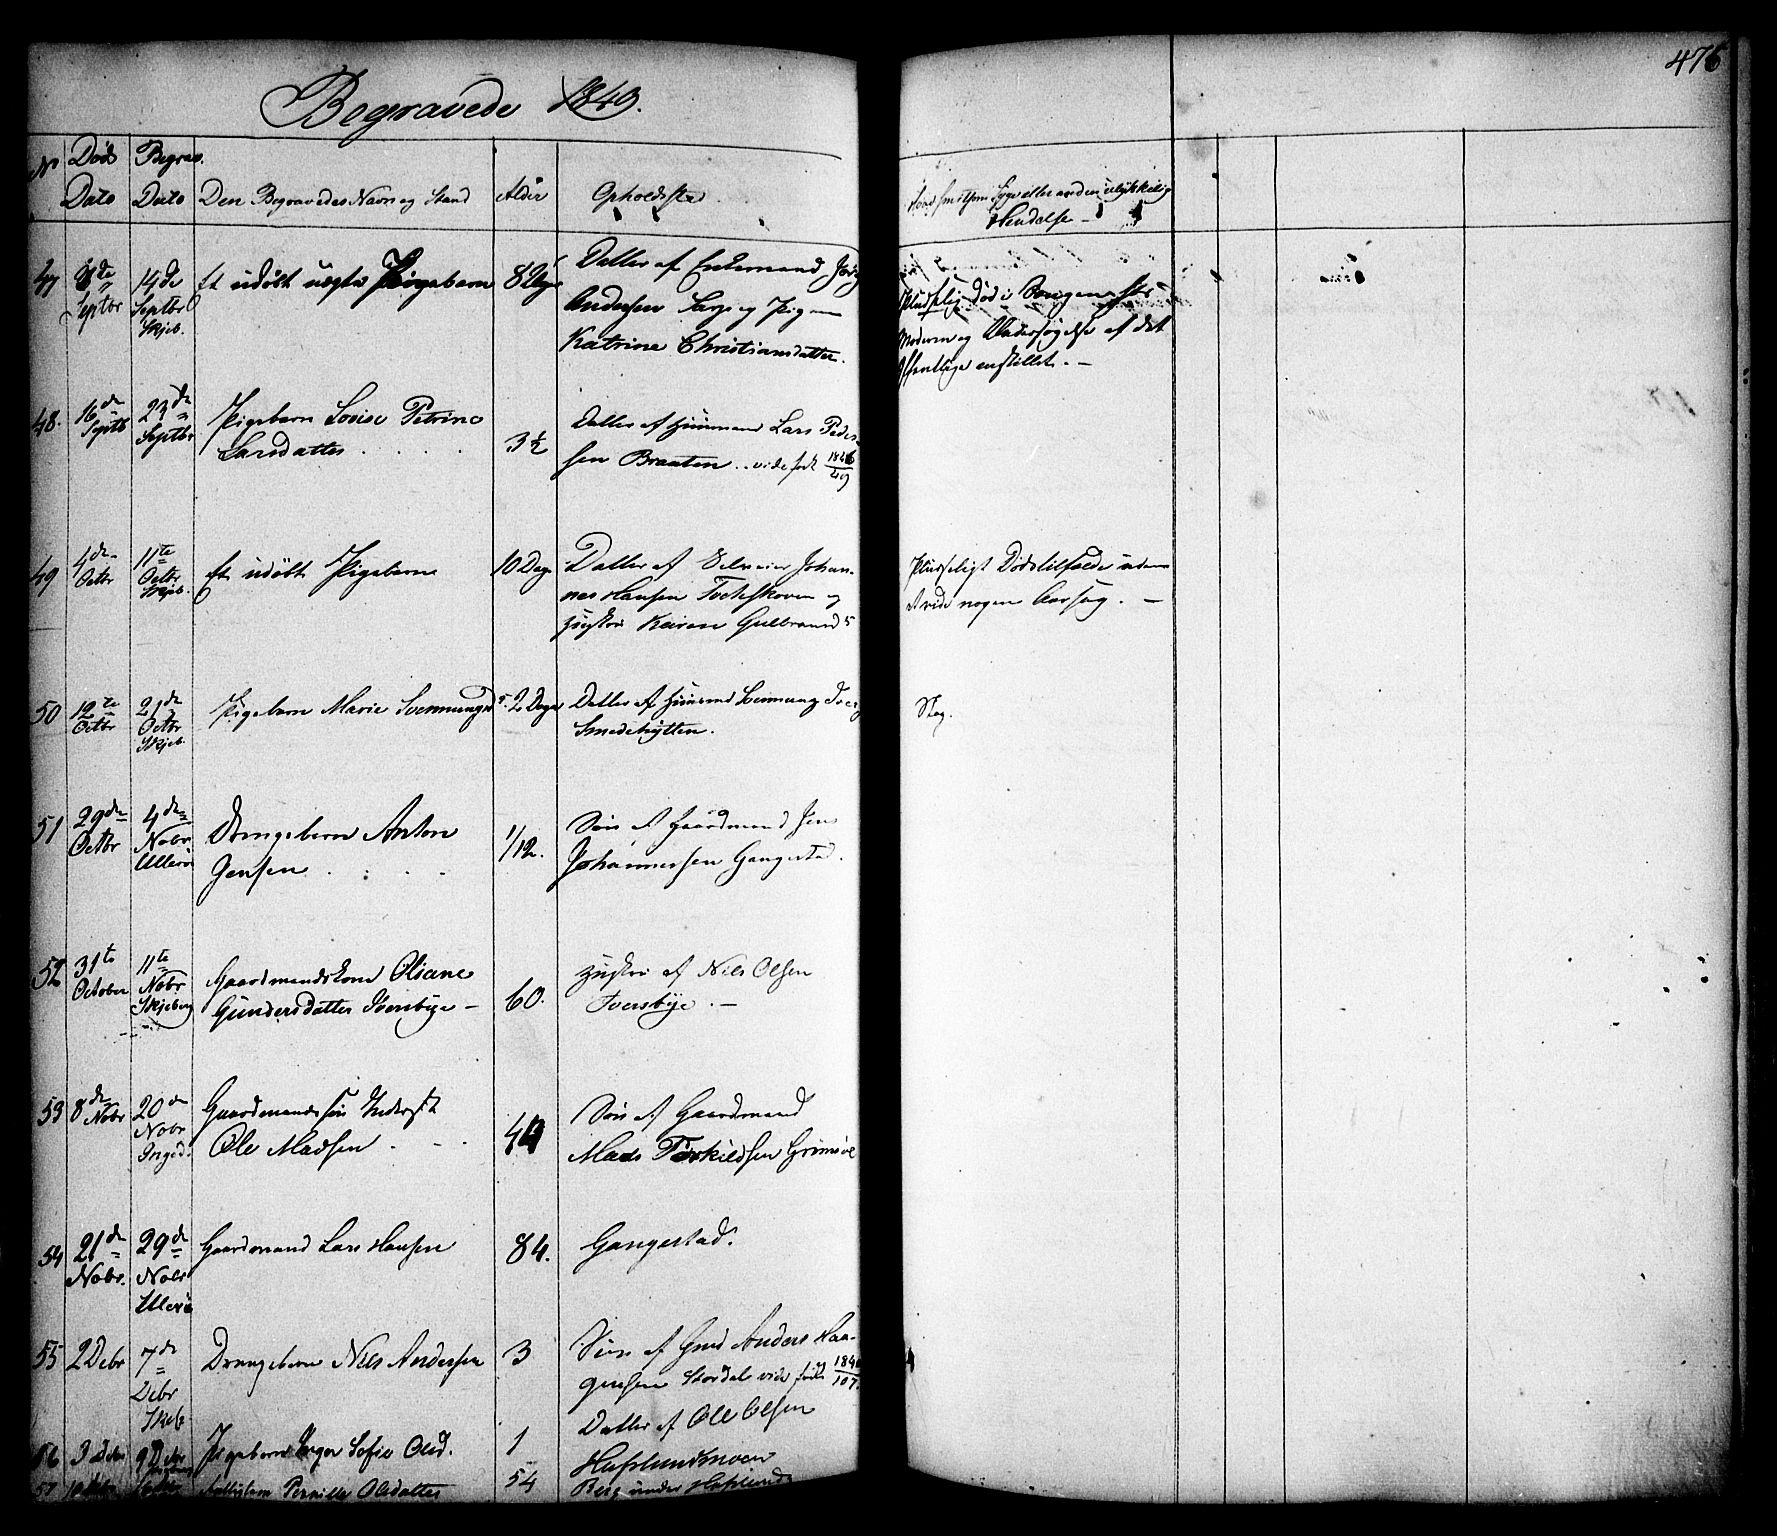 476
Begravede 1849.
No Døds Dato Begrav. Dato Den Begravedes Navn og Stand Alder Opholdsted
Hendelse —
47 de Septbr 14de Septbr Skjeb. Et udøbt uægte Pigebarn 8 Dage Datter af Enkemand
Andersen og Pige
Katrine Christiansdatter.
Pludselig Død i Sengen hos
Moderen og Undersøgelse af det
Offentlige anstillet. —
48. 16de Septb 23de Septbr Pigebarn Lovise Petrine
Larsdatter . . . . 3½ Datter af Huusmand Lars Peder-
sen Braaten .. vide født 1846/49
49 4de Octbr 11te Octbr Skjeb. Et udøbt Pigebarn 10 Dage Datter af Selveier Johan-
nes Hansen Torteskoven og
Hustru Karen Gulbrandds
Pludseligt Dødstilfælde uden
at vide nogen Aarsag. —
50 12te Octbr 21de Octbr Skjeb. Pigebarn Marie Svennungsd 2 Dage Datter af Huusmd Svennung
Smedehytten.
Slag.
51 29de Octbr 4de Nobr Ullerø Drengebarn Anton
Jensen . . . . 1/12. Søn af Gaardmand Jens
Johannessen Gangestad.
52 31te October 11te Nobr Skjeberg Gaardmandskone Oliane
Gundersdatter Iversbye — 60. Hustru af Nils Olsen
Iversbye . —
53 8de Nobr 20de Nobr Inged. Gaardmandssøn Inderst
Ole Madsen . — . 44 Søn af Gaardmand
Mads Torkildsen Grimsøe
54 21de Nobr. 29de Nobr Ullerø Gaardmand Lars Hansen 84. Gangestad.
55 2 Debr 7de Debr Skjeb Drengebarn Nils Andersen 3 Søn af Gmd Anders Haa-
gensen Stordal vide født 1846/107
56 3 Debr 9 Debr Pigebarn Inger Sofie Olsd. 1 Datter af Ole Olsen
Hafslundsmoen
57 Pernille Olsdatter 54 Berg under Hafslund